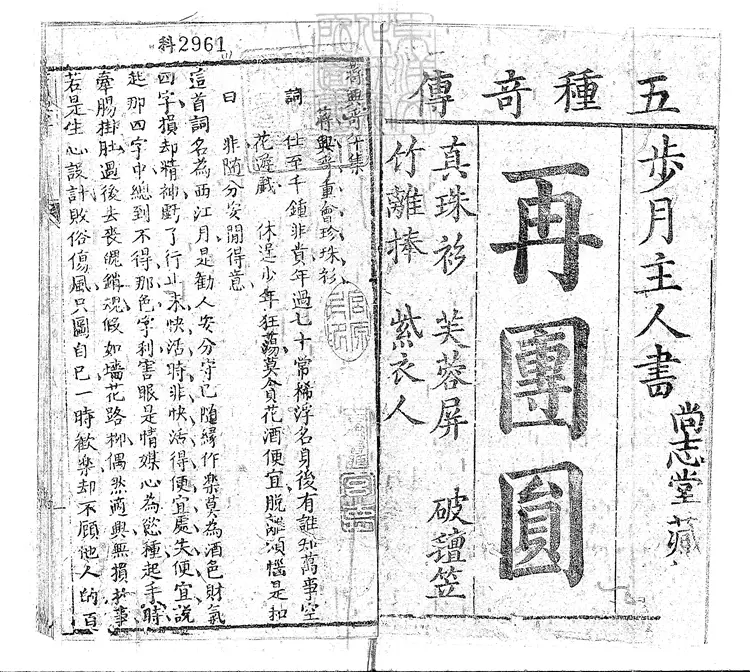 五種奇傳
步月主人書
尚志堂藏
再團圓
真珠衫 芙蓉屏 破氊笠
竹離捧 紫衣人
科2961
蔣興哥全集
蔣興哥重會珍珠衫
詞 仕至千鍾非貴年過七十常稀浮名身後有誰知萬事空
花遊戲 休逞少年狂蕩莫貪花酒便宜脫離煩惱是和
曰 非隨分安閒得意
這首詞名為西江月是勸人安分守己隨緣作樂莫為酒色財氣
四字損却精神虧了行止求快活時非快活得便宜處失便宜說
起那四字中總到不得那色字利害眼是情媒心為慾種起手時
牽腸掛肚過後去喪魄銷魂假如墻花路柳偶然適興無損於事
若是生心設計敗俗傷風只圖自己一時歡樂却不顧他人的百